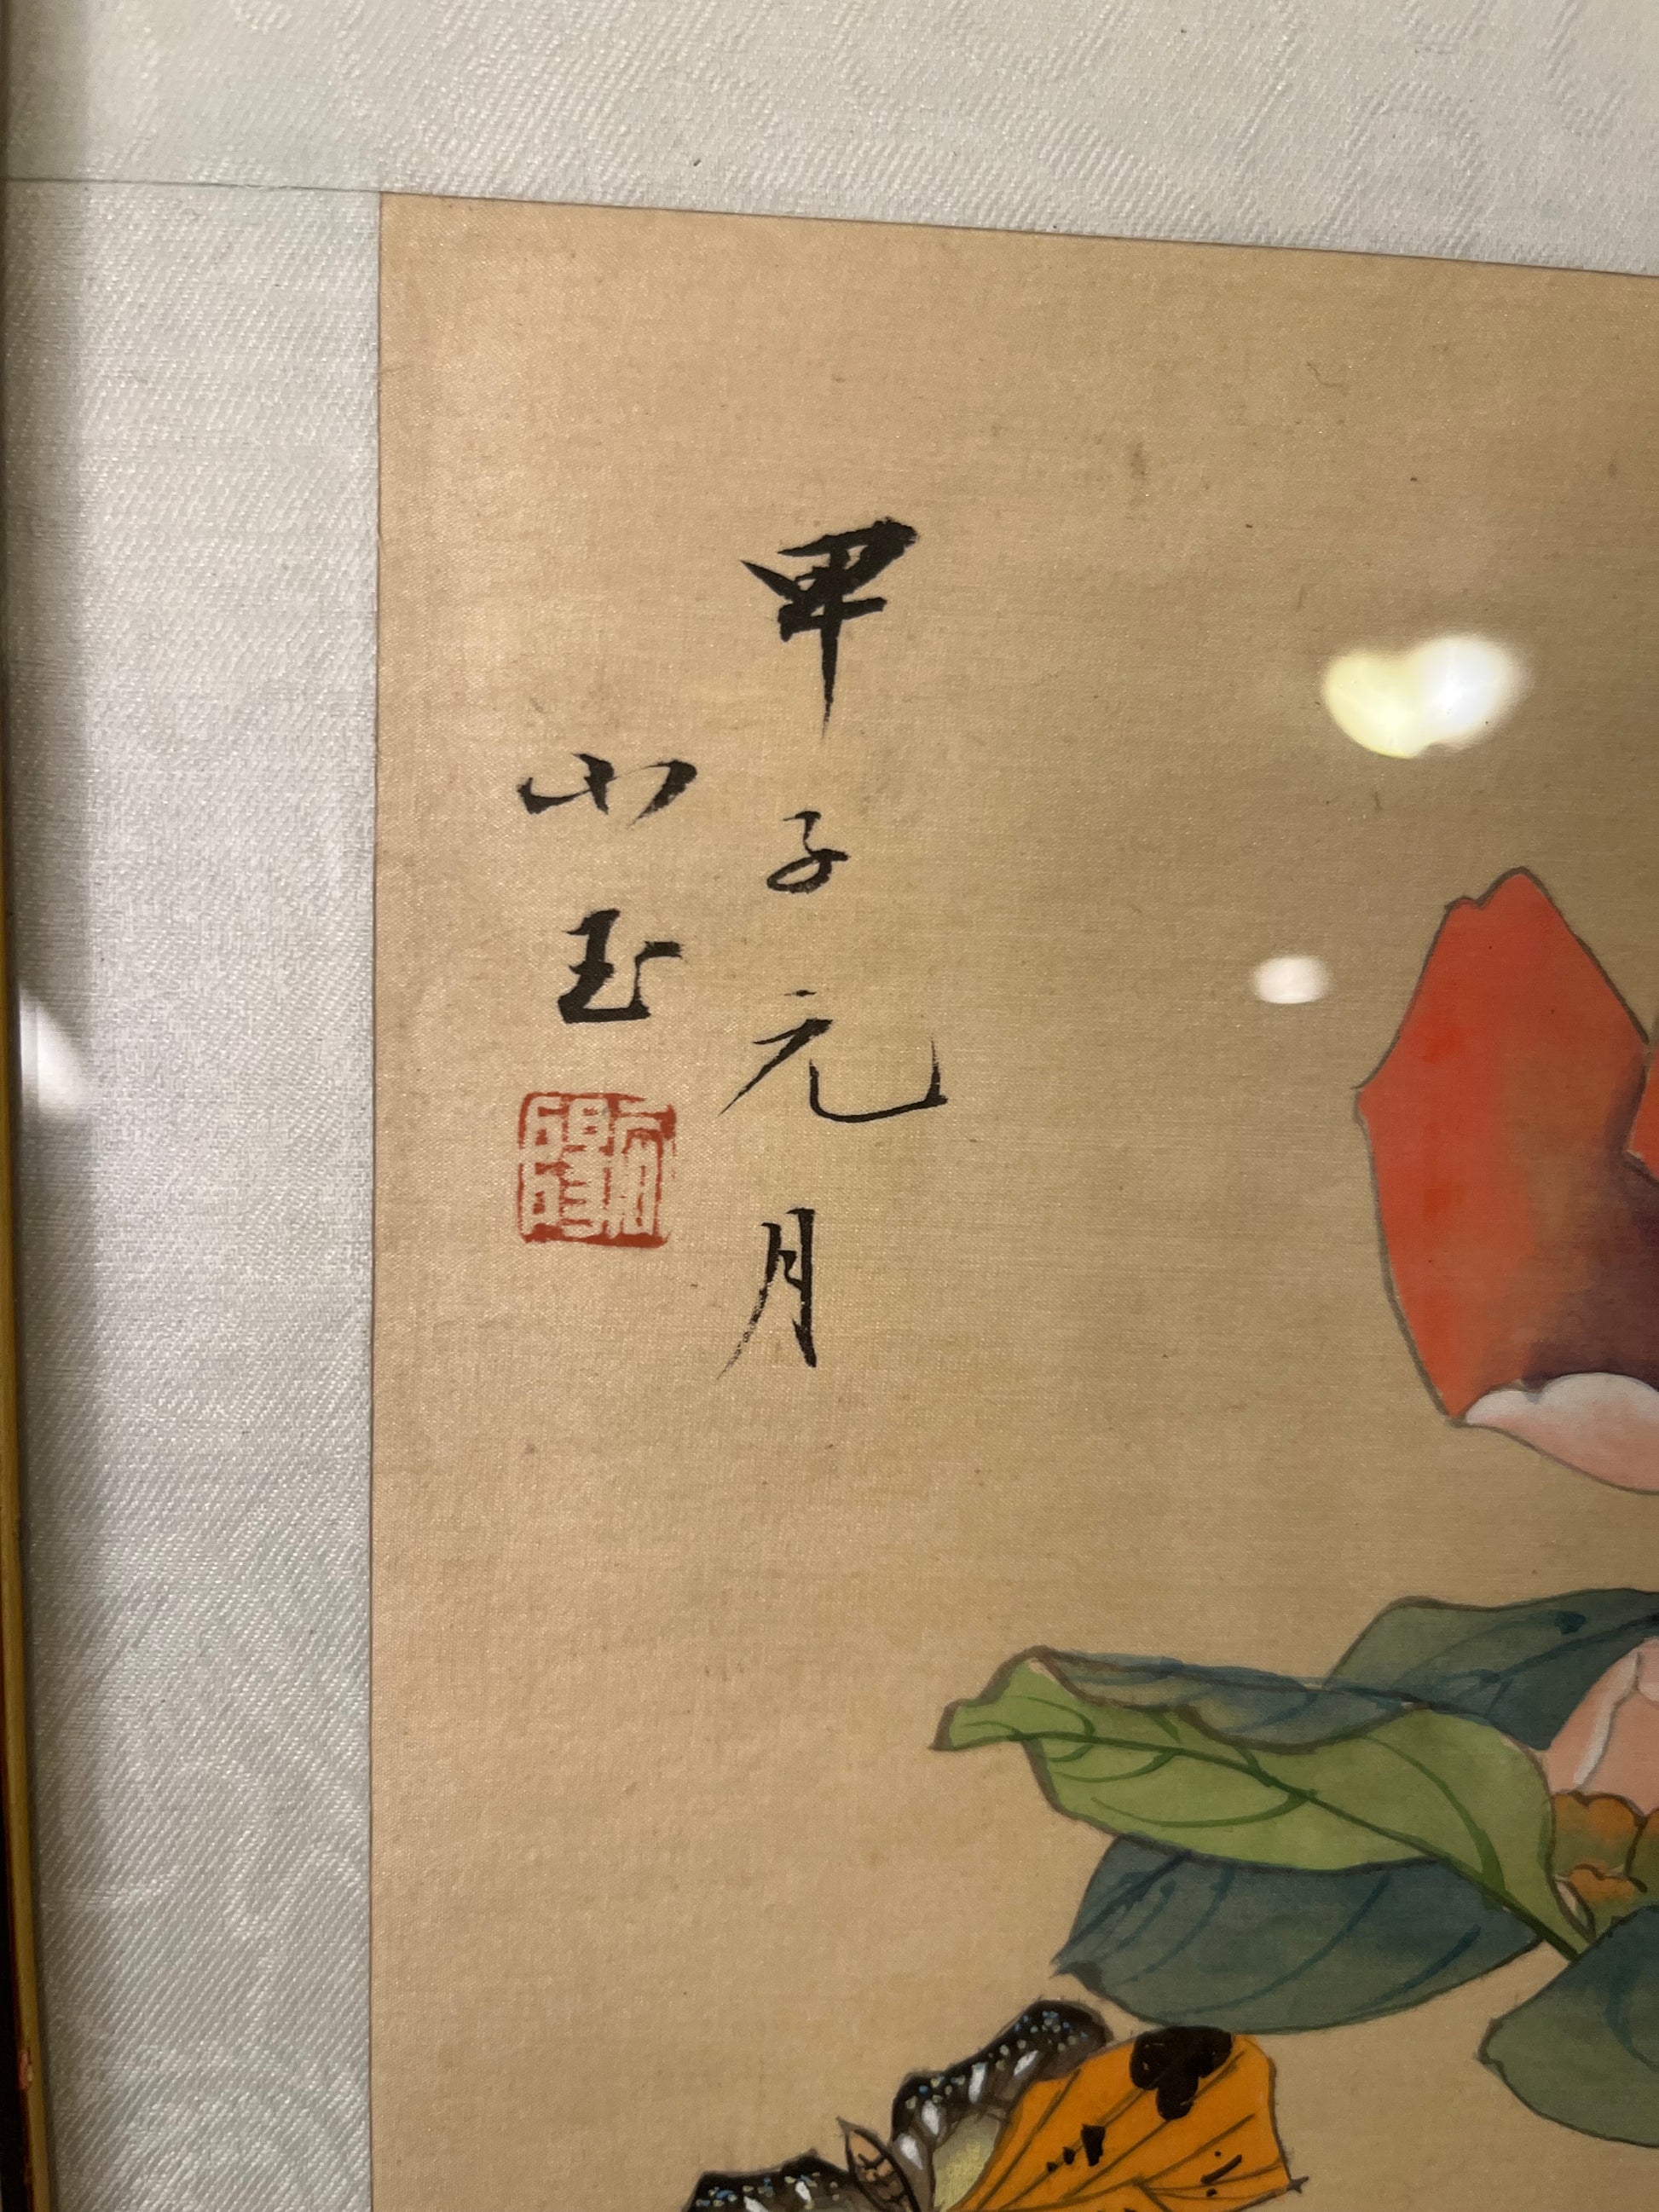 甲子元月
小玉